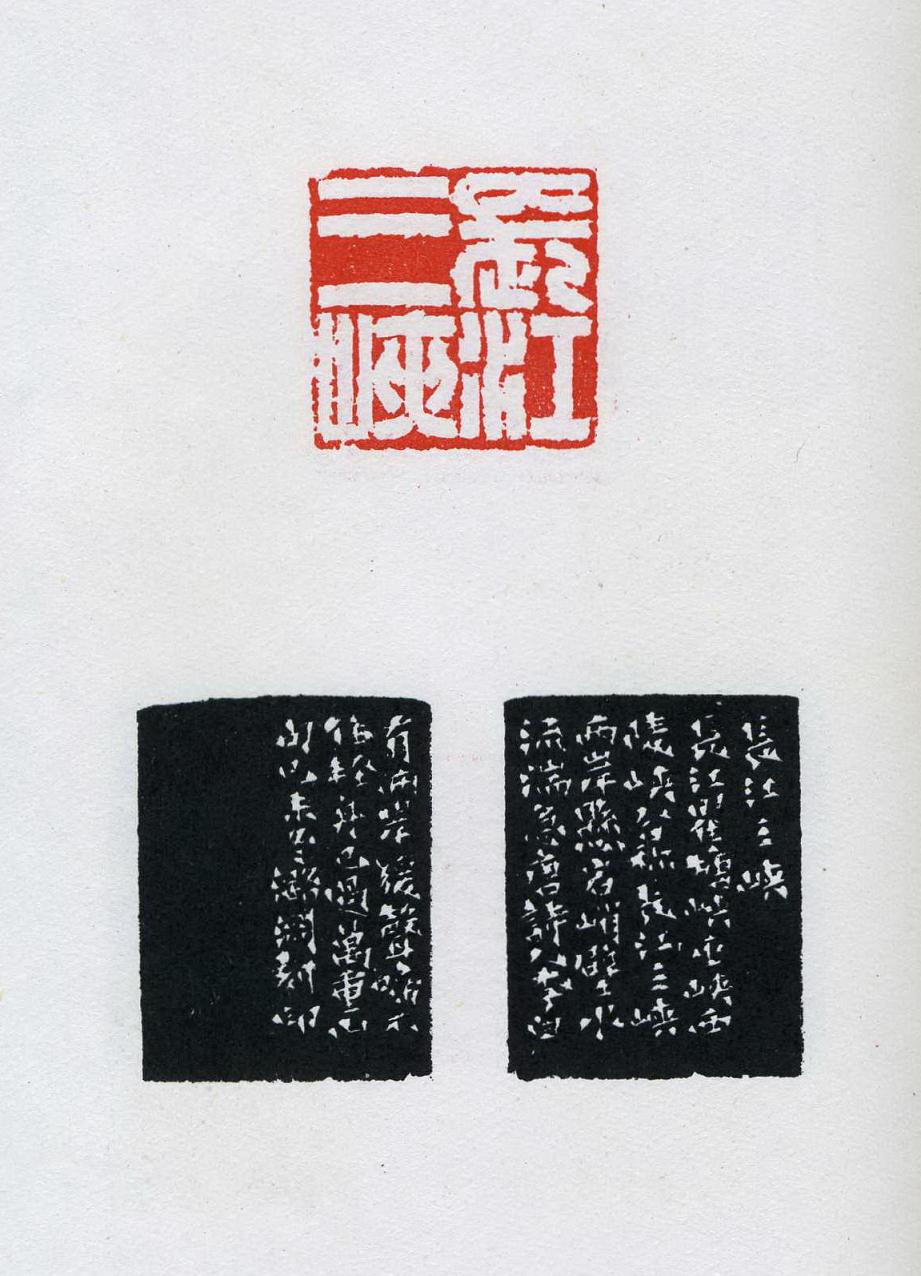 長江
三峽
長江三峽
長江瞿塘峽巫峽西
陵峽人称長江三峽
兩岸懸岩峭壁水
流湍急唐詩人李白
有兩岸猿聲啼不
住輕舟已過萬重山
句己未冬刻印